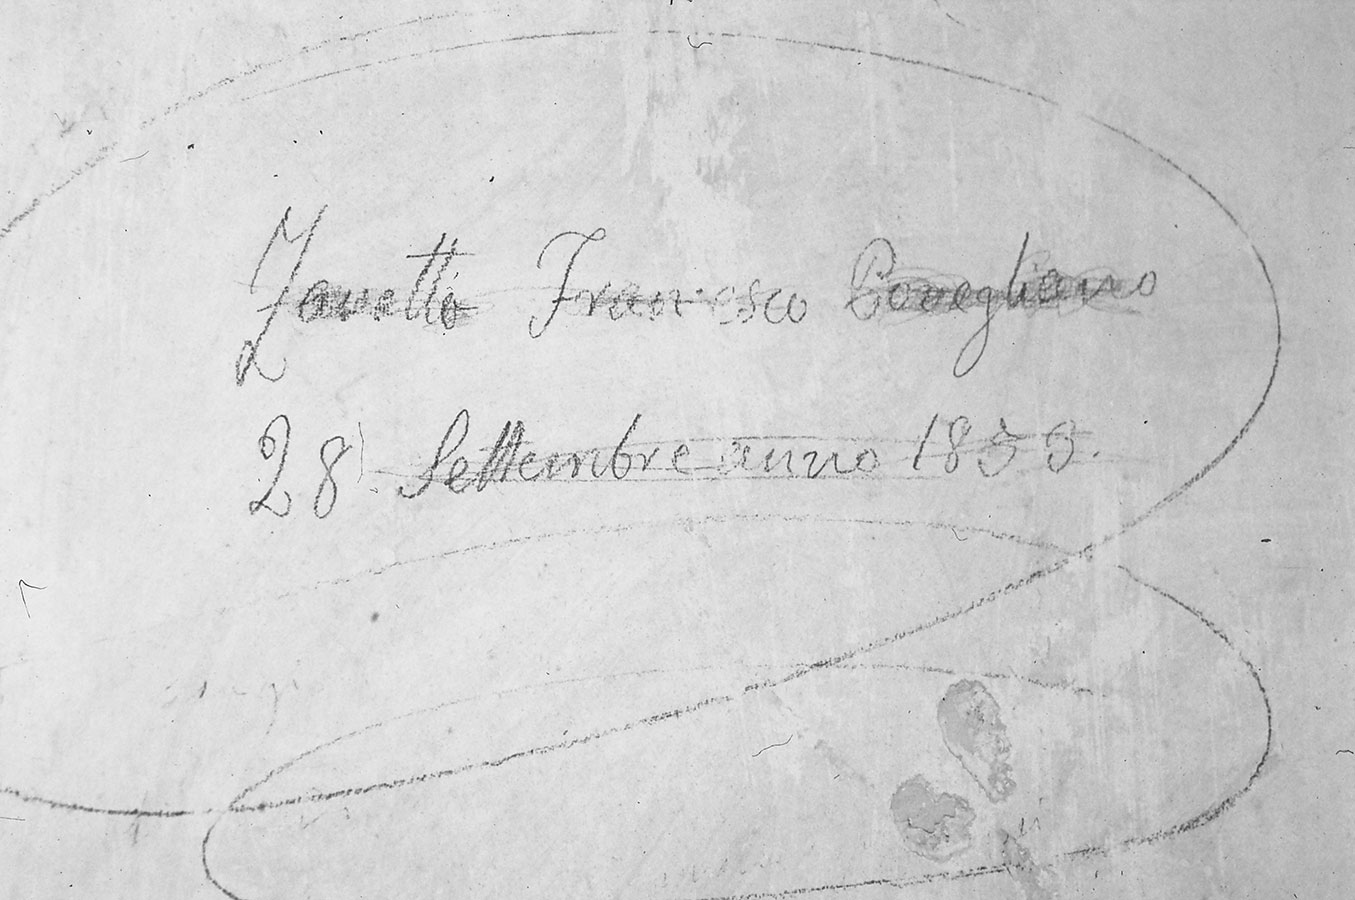 Zanetto Francesco Coneglieno
28 Settembre anno 1853.